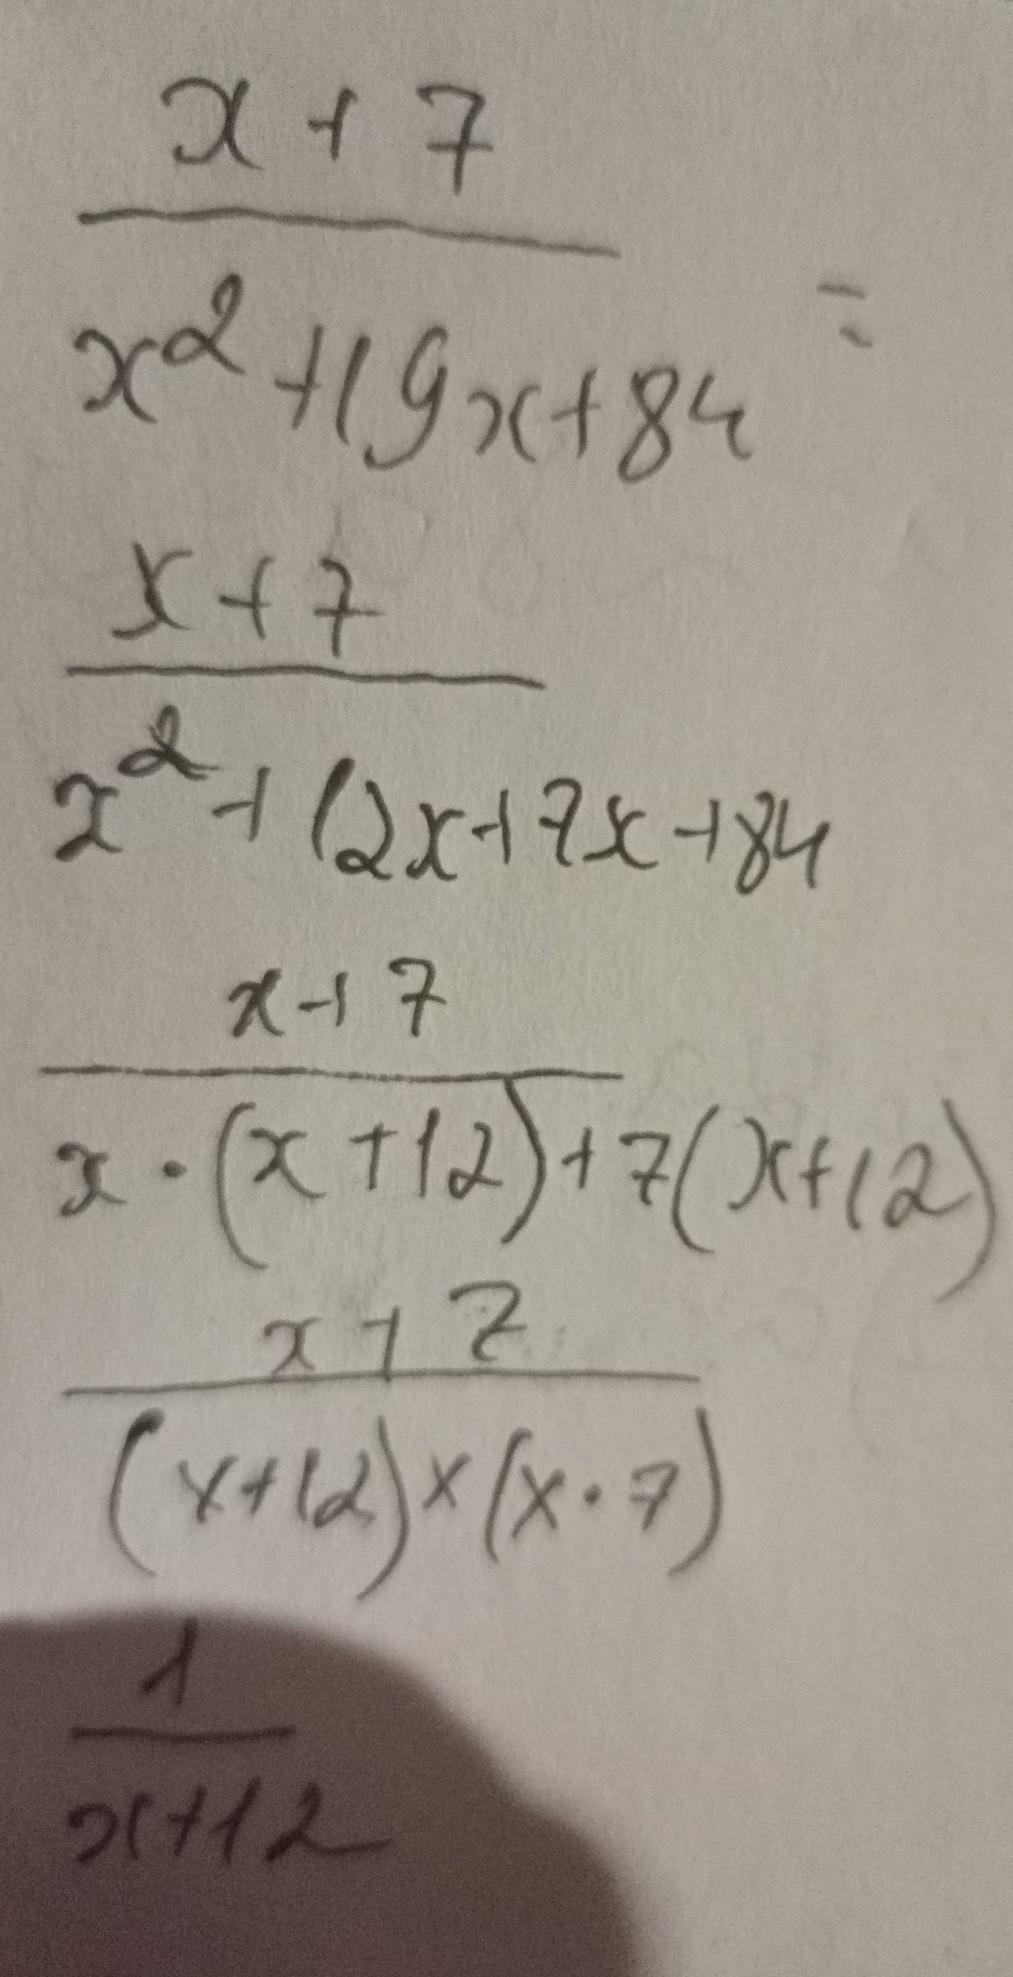 x + 7
x² + 19x + 84 =
x + 7
x² + 12x + 7x + 84
x + 7
x · (x + 12) + 7(x + 12)
x + 7
(x + 12) × (x · 7)
1
x + 12